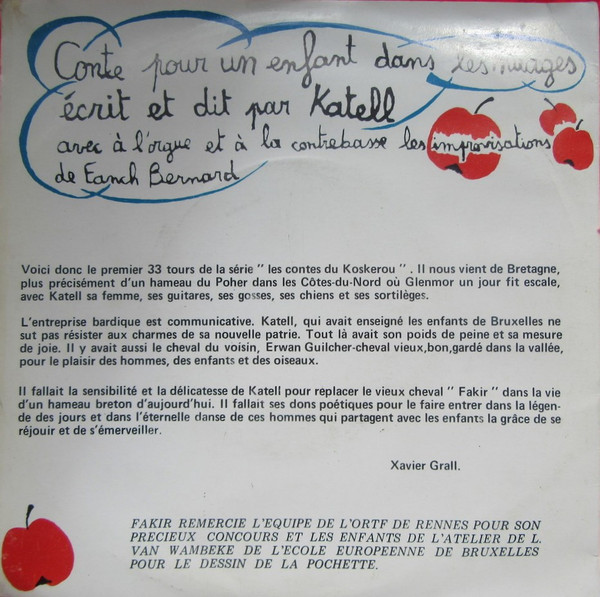 Conte pour un enfant dans les nuages
écrit et dit par Katell
avec à l'orgue et à la contrebasse les improvisations
de Fanch Bernard
Voici donc le premier 33 tours de la série " les contes du Koskerou " . Il nous vient de Bretagne,
plus précisément d'un hameau du Poher dans les Côtes-du-Nord où Glenmor un jour fit escale,
avec Katell sa femme, ses guitares, ses gosses, ses chiens et ses sortilèges.
L'entreprise bardique est communicative. Katell, qui avait enseigné les enfants de Bruxelles ne
sut pas résister aux charmes de sa nouvelle patrie. Tout là avait son poids de peine et sa mesure
de joie. Il y avait aussi le cheval du voisin, Erwan Guilcher-cheval vieux,bon,gardé dans la vallée,
pour le plaisir des hommes, des enfants et des oiseaux.
Il fallait la sensibilité et la délicatesse de Katell pour replacer le vieux cheval " Fakir " dans la vie
d'un hameau breton d'aujourd'hui. Il fallait ses dons poétiques pour le faire entrer dans la légen-
de des jours et dans l'éternelle danse de ces hommes qui partagent avec les enfants la grâce de se
réjouir et de s'émerveiller.
Xavier Grall.
FAKIR REMERCIE L'EQUIPE DE L'ORTF DE RENNES POUR SON
PRECIEUX CONCOURS ET LES ENFANTS DE L'ATELIER DE L.
VAN WAMBEKE DE L'ECOLE EUROPEENNE DE BRUXELLES
POUR LE DESSIN DE LA POCHETTE.